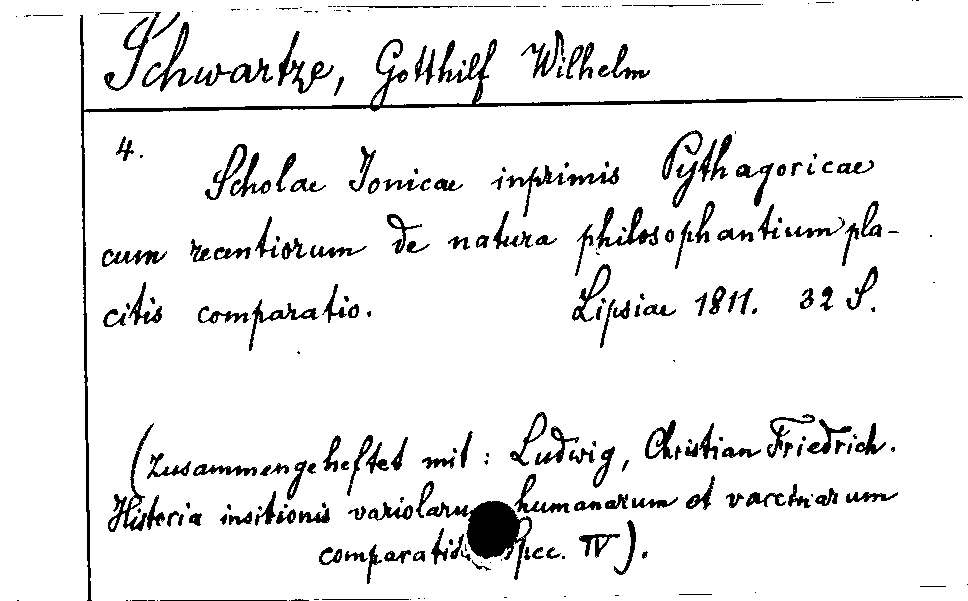 Schwartze, Gotthilf Wilhelm
4.
Scholae Ionicae inprimis Pythagoricae
cum recentiorum de natura philosophantium pla-
citis comparatio. Lipsiae 1811. 32 S.
(Zusammengeheftet mit: Ludwig, Christian Friedrich.
Historia insitionis variolarum humanarum et vaccinarum
comparatio. Spec. IV).